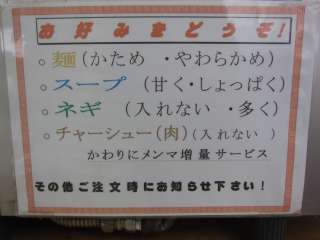 お好みをどうぞ!
○麺(かため ・やわらかめ)
○スープ (甘く・しょっぱく)
○ネギ (入れない ・多く)
○チャーシュー(肉)(入れない )
かわりにメンマ増量サービス
その他ご注文時にお知らせ下さい!